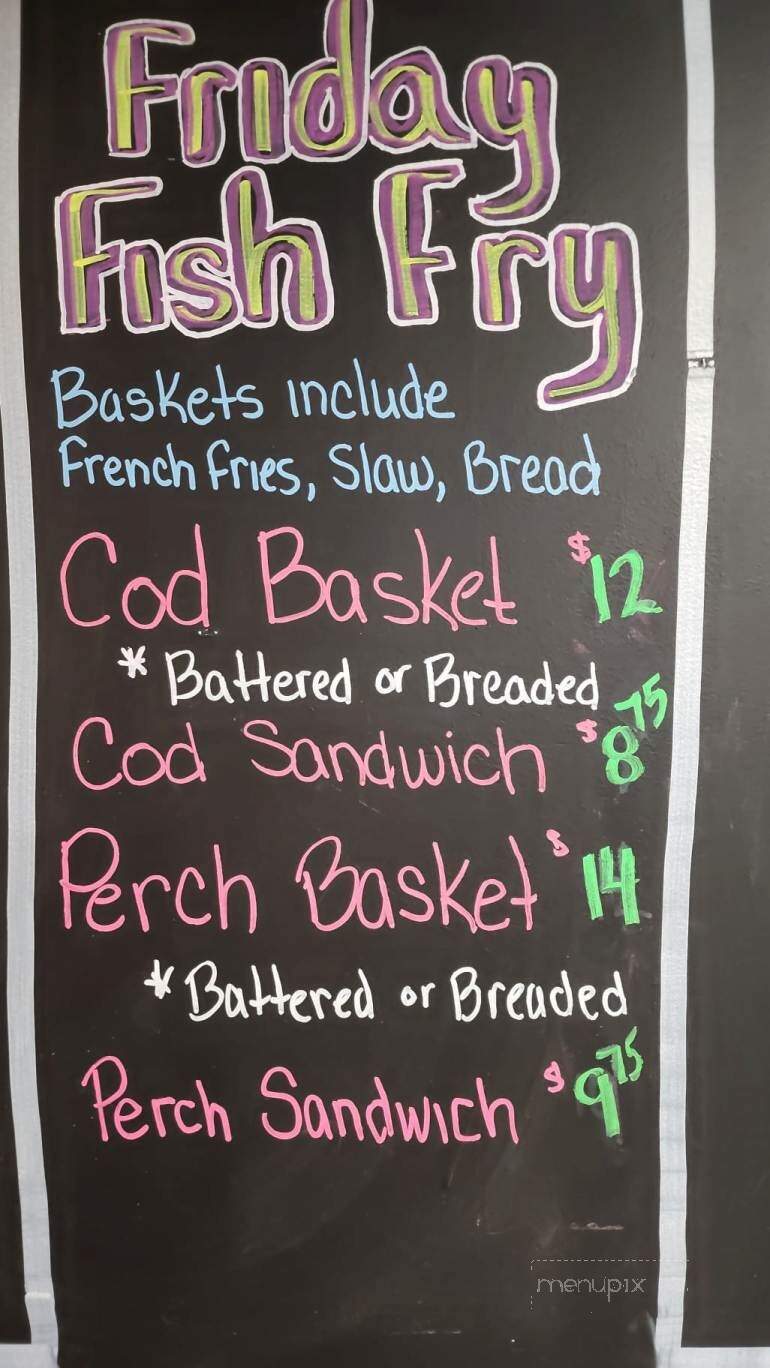 Friday
Fish Fry
Baskets include
French fries, Slaw, Bread
Cod Basket $12
* Battered or Breaded
Cod Sandwich $8 75
Perch Basket $14
* Battered or Breaded
Perch Sandwich $9 75
menupix